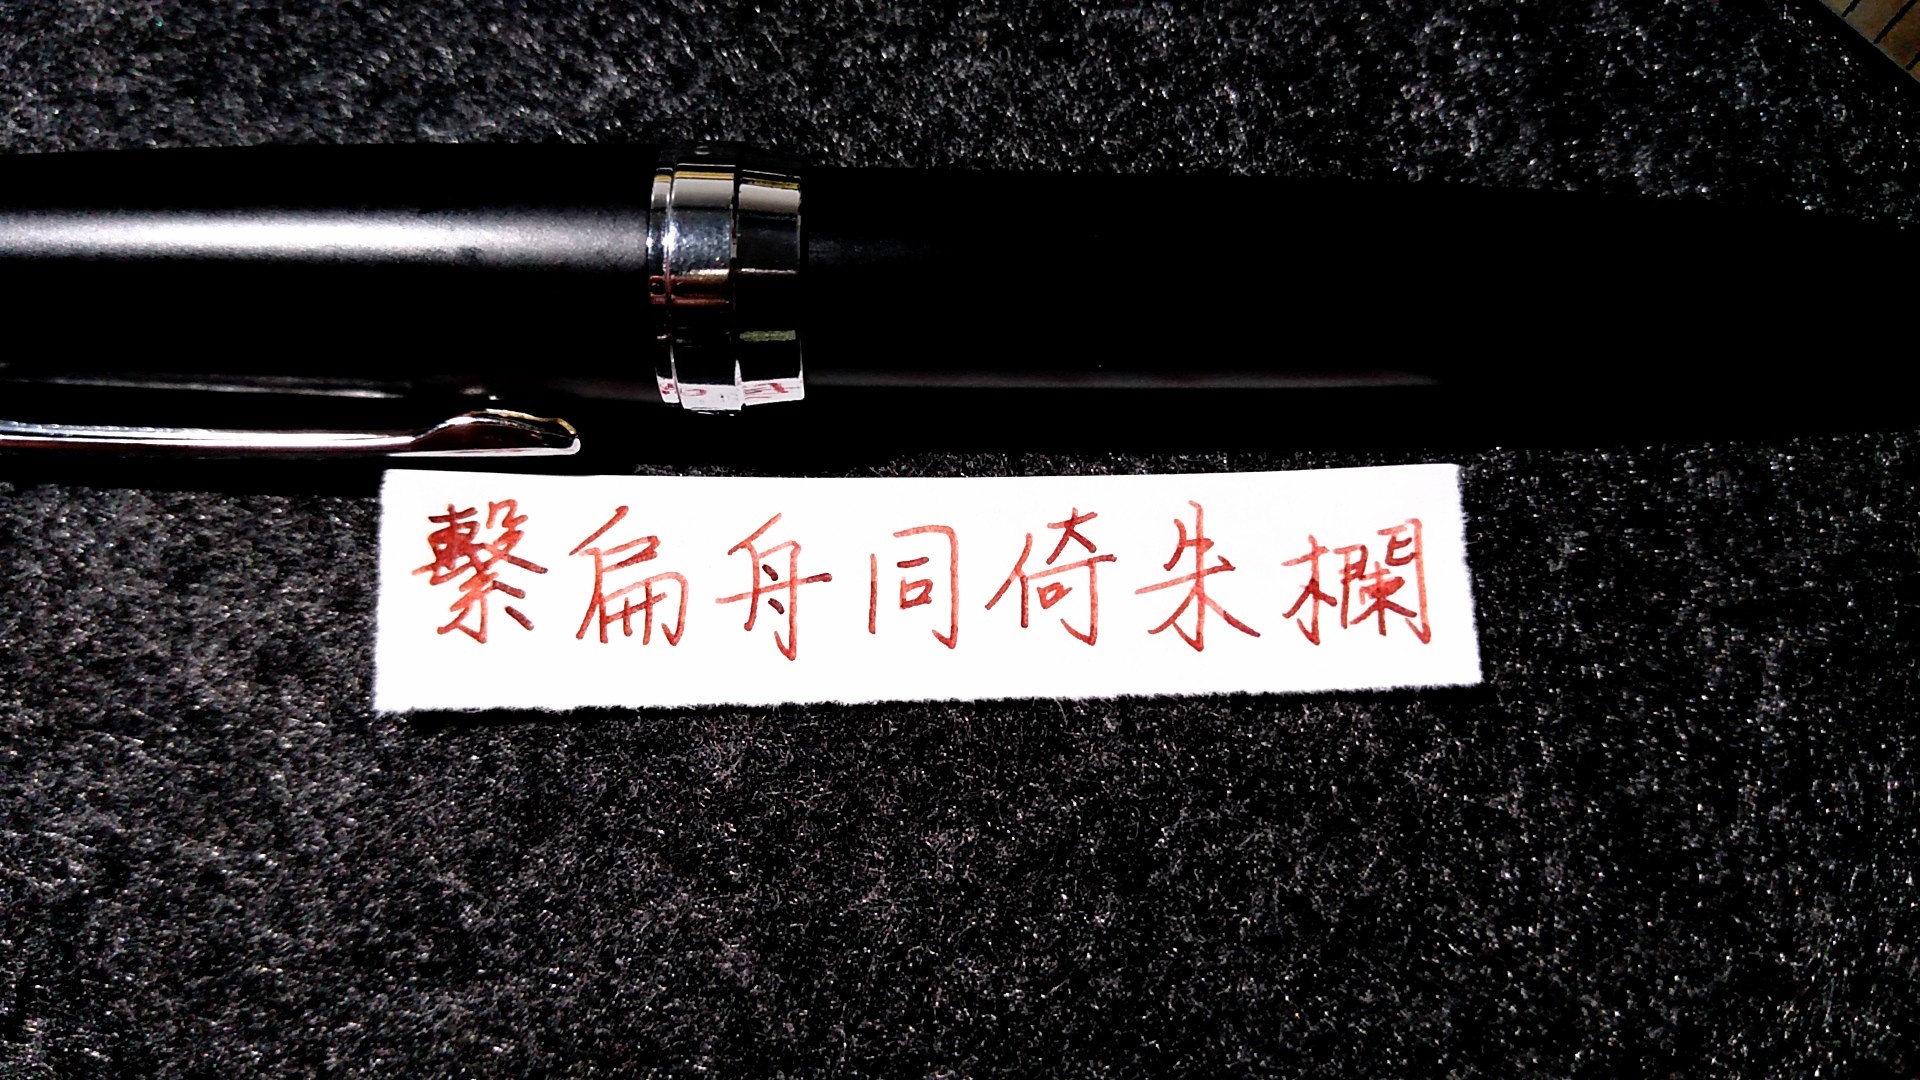 繫扁舟同倚朱欄